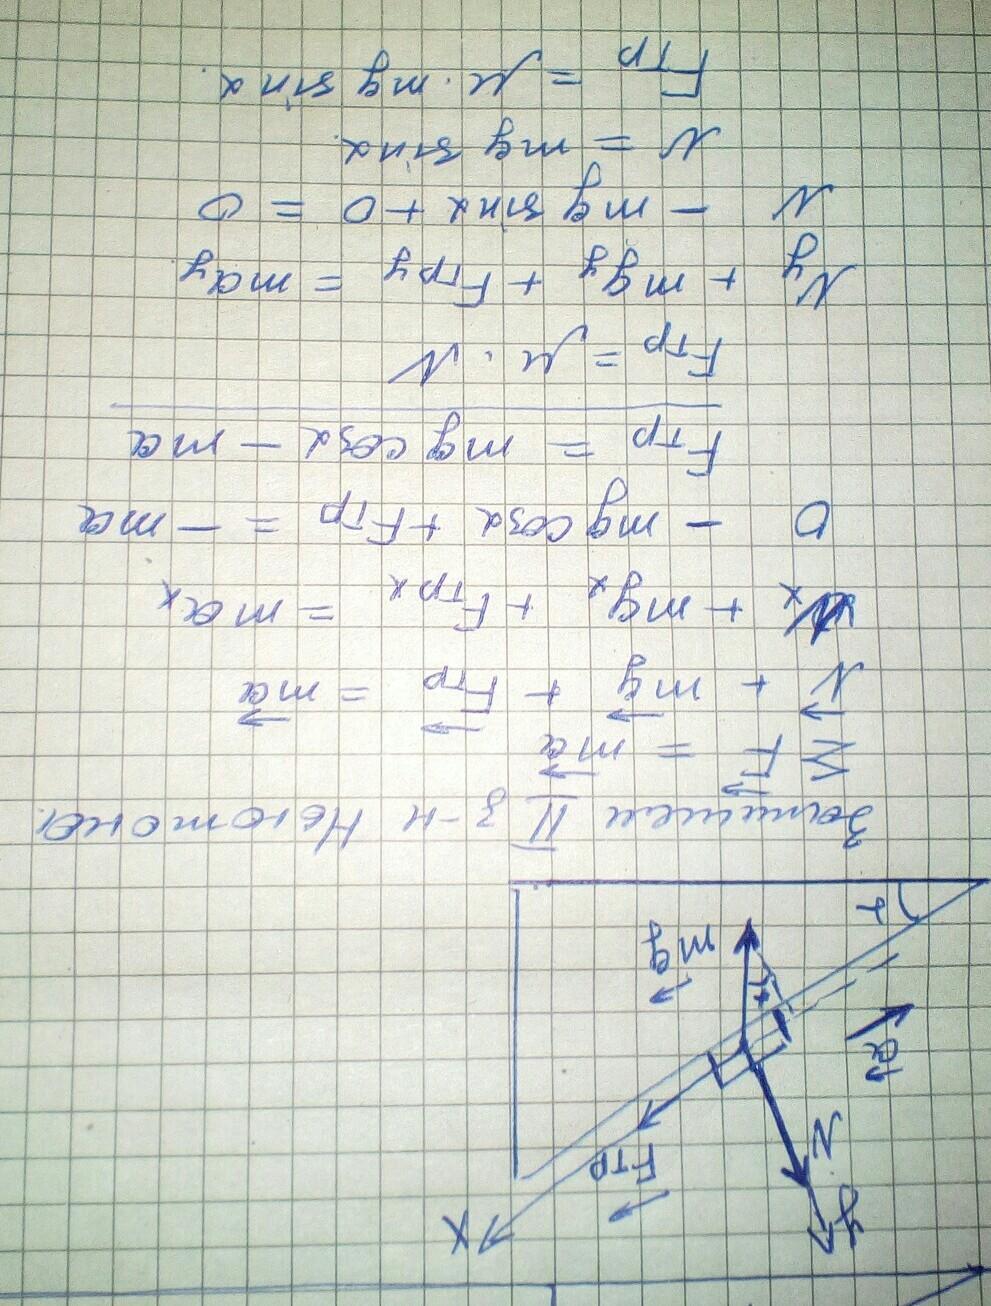 y
x
N
Fтр
a
mg
α
α
Запишем II з-н Ньютона.
∑F = ma
N + mg + Fтр = ma
Nx + mgx + Fтрx = max
0 - mg cosα + Fтр = - ma
Fтр = mg cosα - ma
Fтр = μ · N
Ny + mgy + Fтрy = may
N - mg sinα + 0 = 0
N = mg sinα.
Fтр = μ · mg sinα.